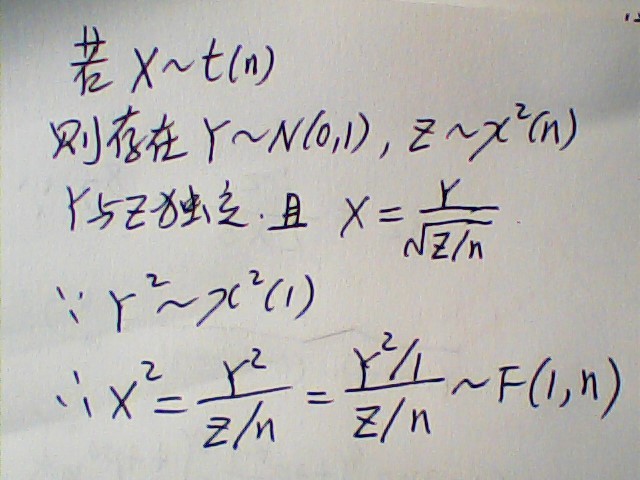 若 X~t(n)
则存在 Y~N(0,1), Z~χ²(n)
Y与Z独立.且 X = Y/√(Z/n)
∵ Y²~χ²(1)
∴ X² = Y²/(Z/n) = (Y²/1)/(Z/n) ~ F(1,n)